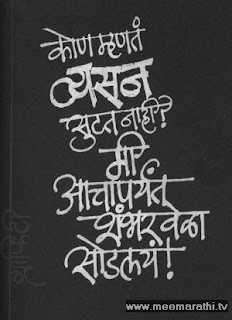 कोण म्हणतं
व्यसन
सुटत नाही?
मी
आत्तापर्यंत
शंभर वेळा
सोडलयं!
www.meemarathi.tv